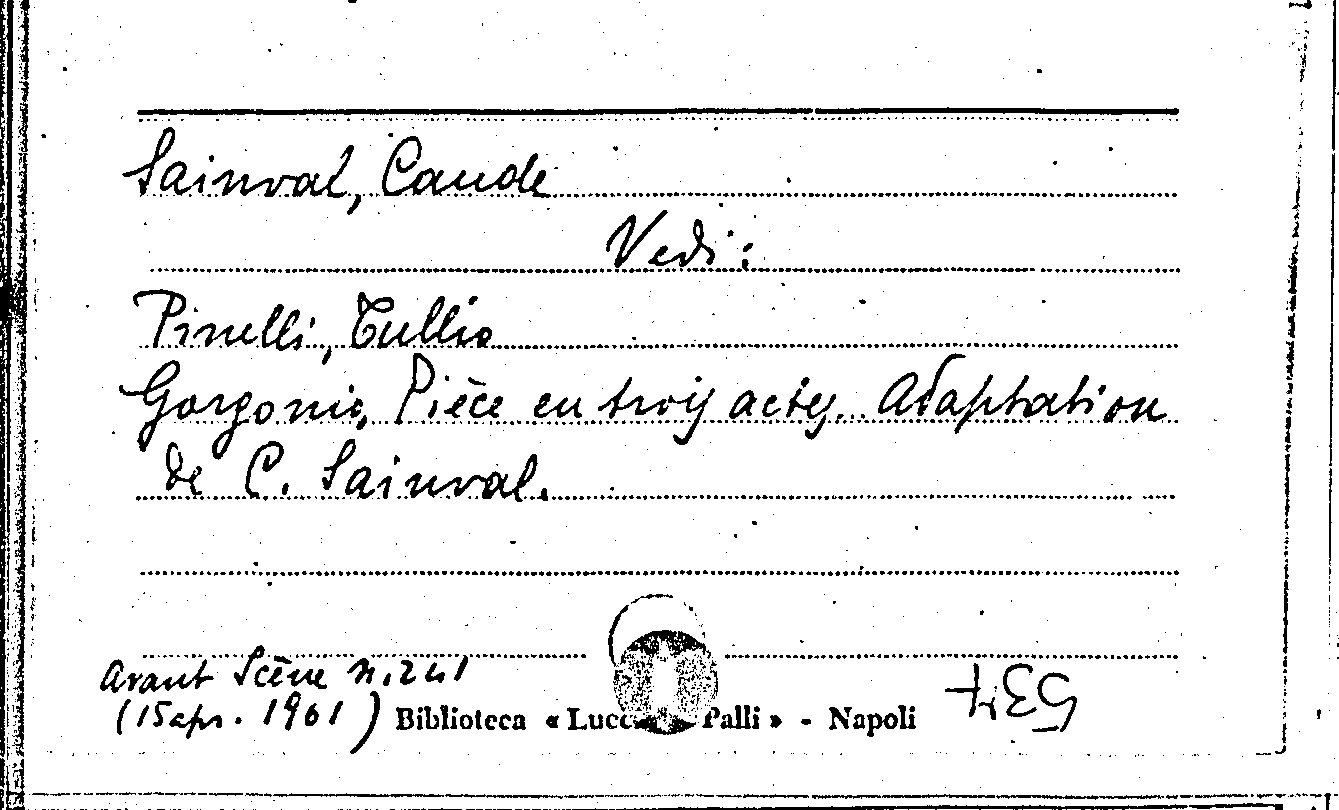 Sainval, Caude
Vedi:
Pinelli, Tullio
Gorgonio, Pièce en trois actes. Adaptation
de C. Sainval.
Avant Scène n. 241
(15 apr. 1961) Biblioteca « Lucc Palli » - Napoli
534